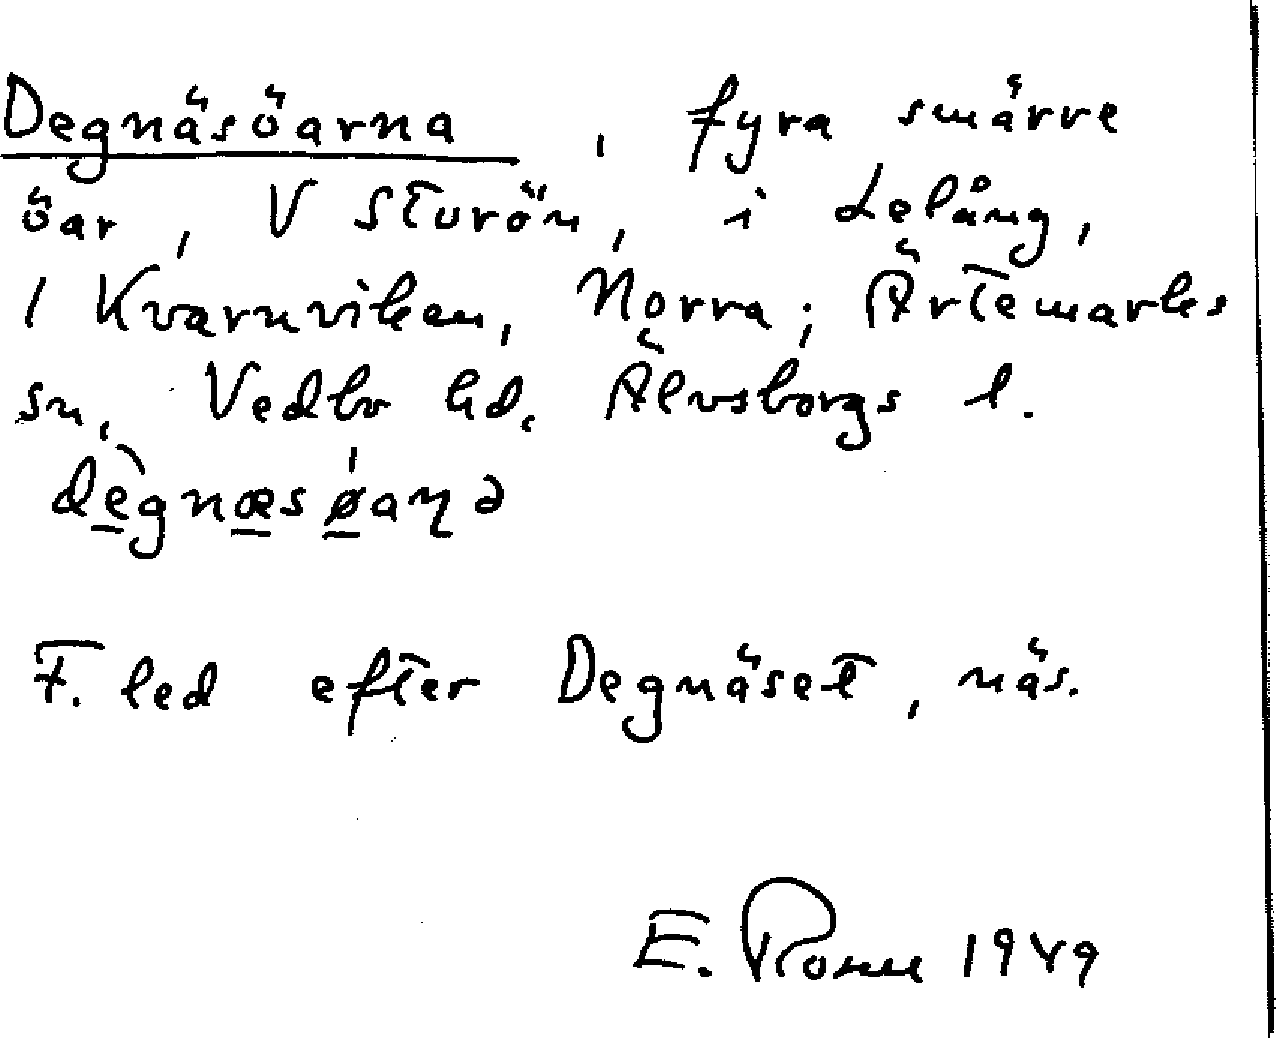 Degnäsöarna, fyra smärre
öar, V Storön, i Lelång,
/ Kvarnviken, Norra; Ärtemarks
sn, Vedbo hd. Älvsborgs l.
dègnæsøaɳə
F. led efter Degnäset, näs.
E. 1949